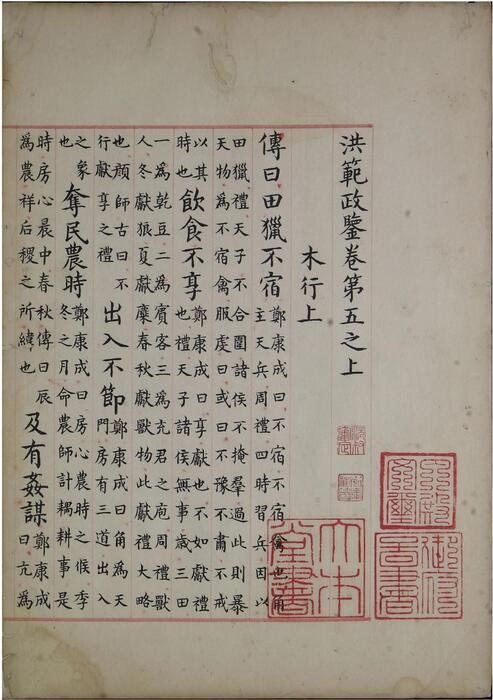 洪範政鑒卷第五之上
木行上
傳曰田獵不宿
鄭康成曰不宿不宿禽也角
主天兵周禮四時習兵因以
田獵禮天子不合圍諸侯不掩羣過此則暴
天物為不宿禽服虔曰或曰不豫不肅不戒
以其
時也
飲食不享
鄭康成曰享獻也不如獻禮
也禮天子諸侯無事歲三田
一為乾豆二為賓客三為充君之庖周禮獸
人冬獻狼夏獻麋春秋獻獸物此獻禮大略
也顏師古曰不
行獻享之禮
出入不節
鄭康成曰角為天
門房有三道出入
之象
也
奪民農時
鄭康成曰房心農時之候季
冬之月命農師計耦耕事是
時房心晨中春秋傳曰辰
為農祥后稷之所緯也
及有姦謀
鄭康成
曰亢為
內殿文璽
御府圖書
大本堂書